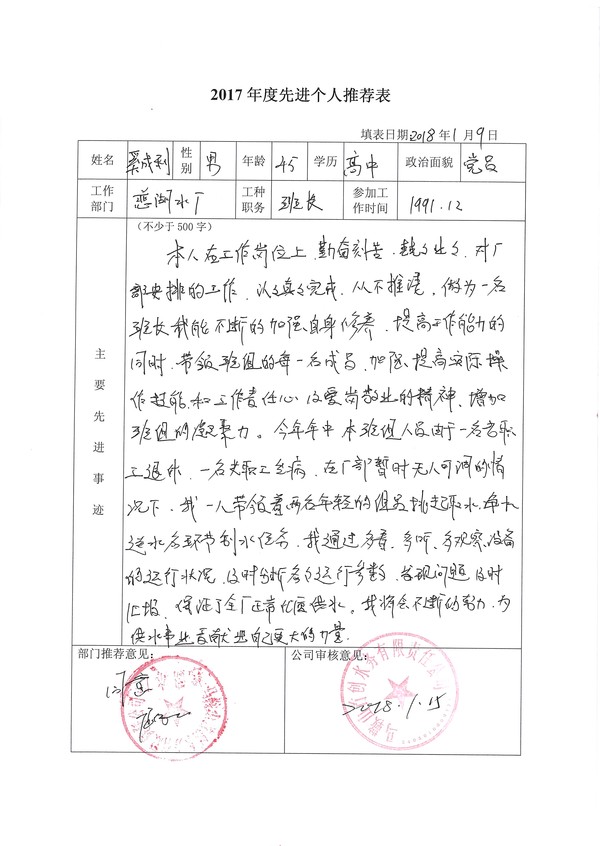 2017 年度先进个人推荐表
填表日期2018年1月9日
姓名 奚成利 性别 男 年龄 45 学历 高中 政治面貌 党员
工作部门 慈湖水厂 工种职务 班长 参加工作时间 1991.12
(不少于 500 字)
主要先进事迹
本人在工作岗位上,勤奋刻苦、兢兢业业,对厂
部安排的工作,认认真真完成,从不推诿,做为一名
班长我能不断的加强自身修养,提高工作能力的
同时,带领班组的每一名成员,加强、提高实际操
作技能,和工作责任心及爱岗敬业的精神,增加
班组的凝聚力。今年年中本班组人员由于一名老职
工退休,一名女职工生病,在厂部暂时无人可调的情
况下,我一人带领着两名年轻的组员挑起取水、净水
送水各环节制水任务,我通过多看、多听、多观察,设备
的运行状况,及时分析各运行参数,发现问题及时
汇报,保证了全厂正常优质供水。我将会不断的努力,为
供水事业贡献出自己更大的力量
部门推荐意见:
同意
公司审核意见:
2018.1.15